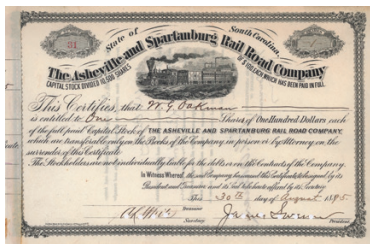 State of South Carolina
31
The Asheville and Spartanburg Rail Road Company
CAPITAL STOCK DIVIDED 10,500 SHARES
OF $100 EACH WHICH HAS BEEN PAID IN FULL.
This Certifies, that W. G. Oakman
is entitled to One Shares of One Hundred Dollars each
of the full paid Capital Stock of THE ASHEVILLE AND SPARTANBURG RAIL ROAD COMPANY,
which are transferable only on the Books of the Company in person or by Attorney on the
surrender of this Certificate.
The Stockholders are not individually liable for the debts or on the Contracts of the Company.
In Witness Whereof, the said Company has caused this Certificate to be signed by its
President and Treasurer and its Seal to be hereto affixed by its Secretary
This 30th day of August 1895